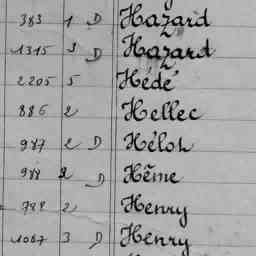 383 1 D Hazard
1315 3 D Hazard
2205 5 Hédé
886 2 Hellec
987 2 D Héloh
988 2 D Hême
788 2 Henry
1067 3 D Henry